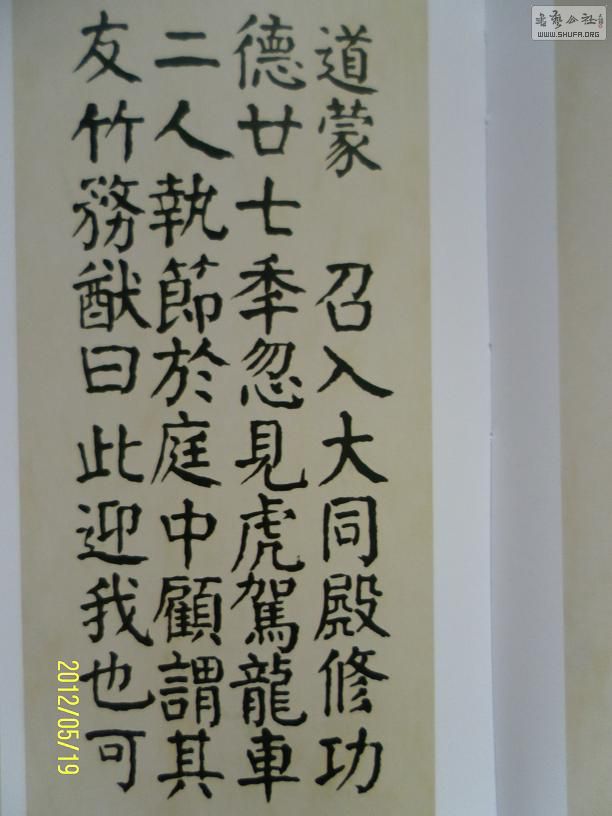 道蒙 召入大同殿修功
德廿七年忽見虎駕龍車
二人執節於庭中顧謂其
友竹務猷曰此迎我也可
2012/05/19
书艺公社
WWW.SHUFA.ORG